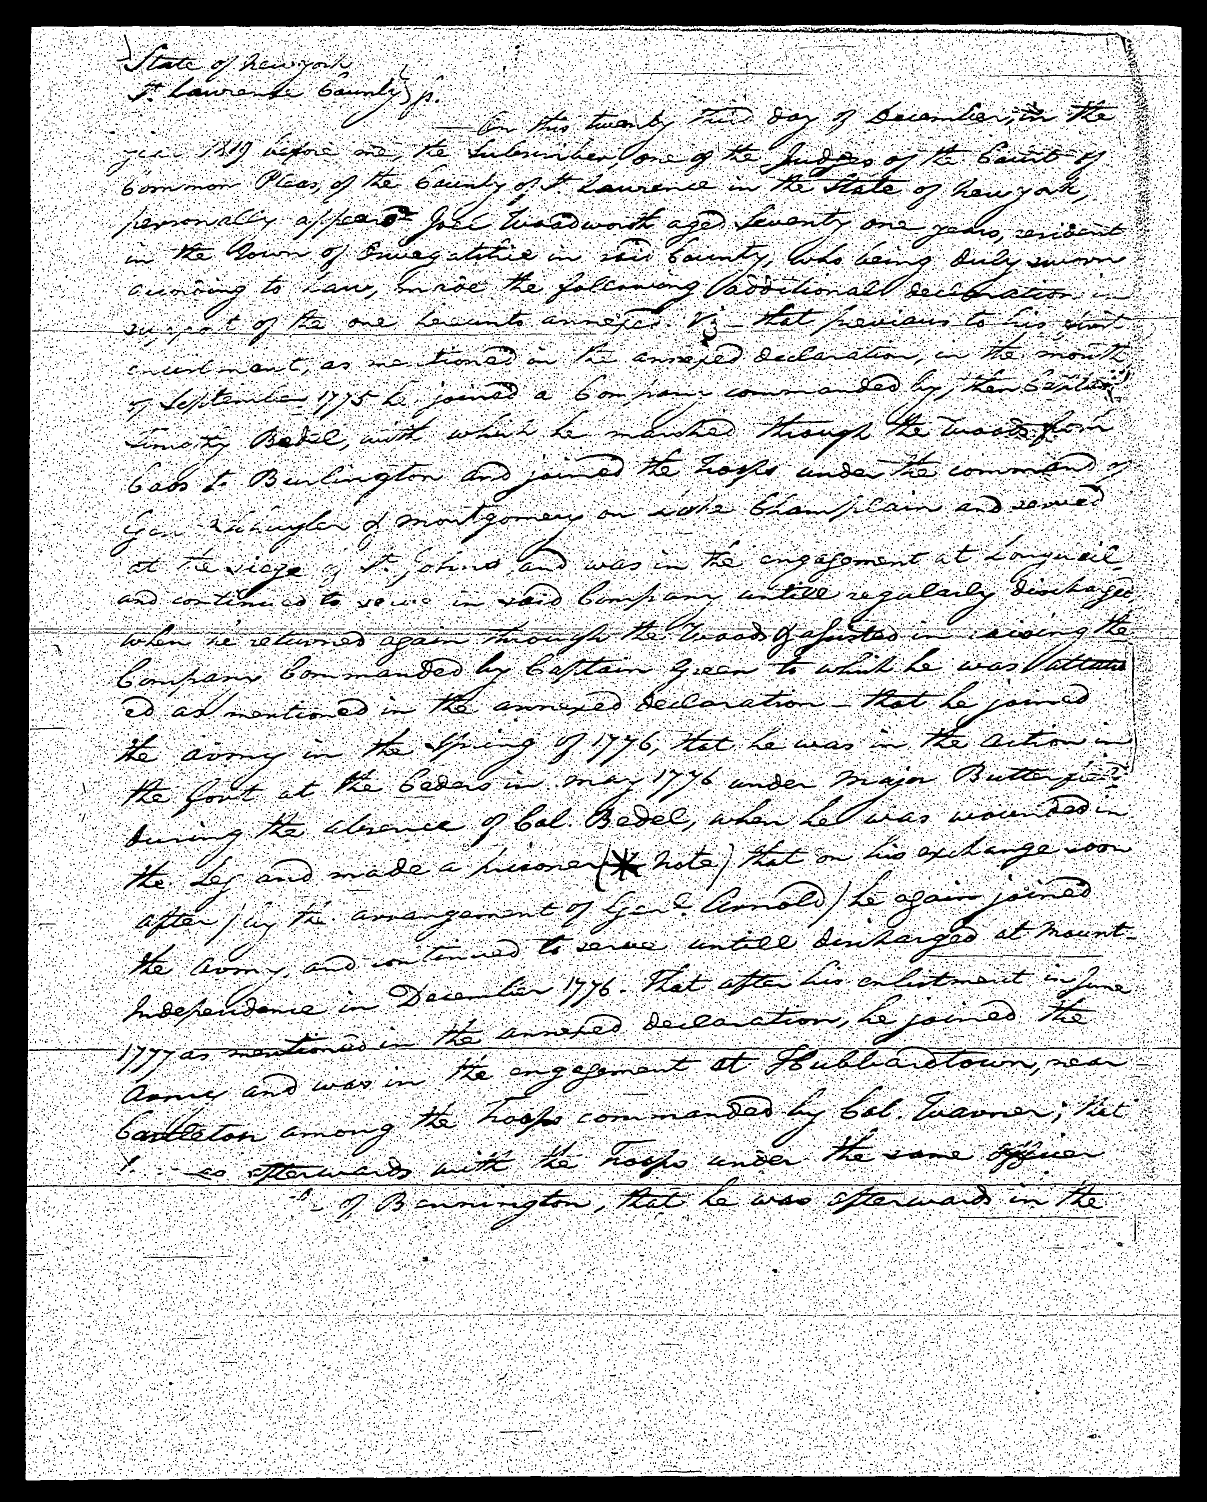 State of New york
St. Lawrence County } ss.
On this twenty third day of December, in the
year 1819 before me, the Subscriber, one of the Judges of the Court of
Common Pleas, of the County of St Lawrence in the State of New york,
personally appeared Joel Woodworth aged Seventy one years, resident
in the Town of Oswegatchie in said County, who being duly sworn
according to Law, made the following additional declaration in
support of the one hereunto annexed. Viz — that previous to his first
enlistment, as mentioned in the annexed declaration, in the month
of September 1775 he joined a Company commanded by, then Captain
Timothy Bedel, with which he marched through the Woods from
Coos to Burlington and joined the Troops under the command of
Gen Schuyler & Montgomery on Lake Champlain and served
at the siege of St. Johns and was in the engagement at Longueil
and continued to serve in said Company untill regularly discharged
when he returned again through the Woods & assisted in raising the
Company Commanded by Captain Green to which he was attatch
ed as mentioned in the annexed declaration — that he joined
the army in the Spring of 1776, that he was in the action in
the fort at the Ceders in may 1776 under Major Butterfield
during the absence of Col. Bedel, when he was wounded in
the Leg and made a prisoner (* Note) that on his exchange soon
after (by the arrangement of Genl. Arnold) he again joined
the army, and continued to serve untill discharged at Mount-
Independence in December 1776. That after his enlistment in June
1777 as mentioned in the annexed declaration, he joined the
Army and was in the engagement at Hubbardtown, near
Castleton among the Troops commanded by Col. Warner; that
was afterwards with the Troops under the same officer
of Bennington, that he was afterwards in the